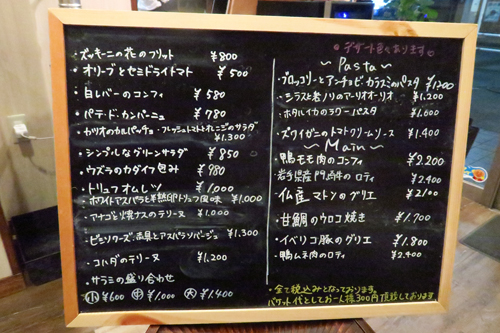 ・ズッキーニの花のフリット ¥800
・オリーブとセミドライトマト ¥500
・白レバーのコンフィ ¥580
・パテ・ド・カンパーニュ ¥780
・カツオのカルパッチョ フレッシュトマトとオレンジのサラダ ¥1,300
・シンプルなグリーンサラダ ¥850
・ウズラのカダイフ包み ¥980
・トリュフオムレツ ¥1,000
・ホワイトアスパラと半熟卵トリュフ風味 ¥1,000
・アナゴと焼ナスのテリーヌ ¥1,000
・ビシソワーズ 雲丹とアスパラソバージュ ¥1,300
・コハダのテリーヌ ¥1,200
・サラミの盛り合わせ
小 ¥600 中 ¥1,000 大 ¥1,400
・デザート色々あります
〜Pasta〜
・ブロッコリーとアンチョビ カラスミのパスタ ¥1,200
・シラスと岩ノリのアーリオオーリオ ¥1,200
・ホタルイカのラグーパスタ ¥1,600
・ズワイガニのトマトクリームソース ¥1,400
〜Main〜
・鴨モモ肉のコンフィ ¥2,200
・岩手県産門崎牛のロティ ¥2,400
・仏産マトンのグリエ ¥2,100
・甘鯛のウロコ焼き ¥1,700
・イベリコ豚のグリエ ¥1,800
・鴨ムネ肉のロティ ¥2,400
・全て税込みとなっております。
バケット代としてお一人様300円頂戴しております